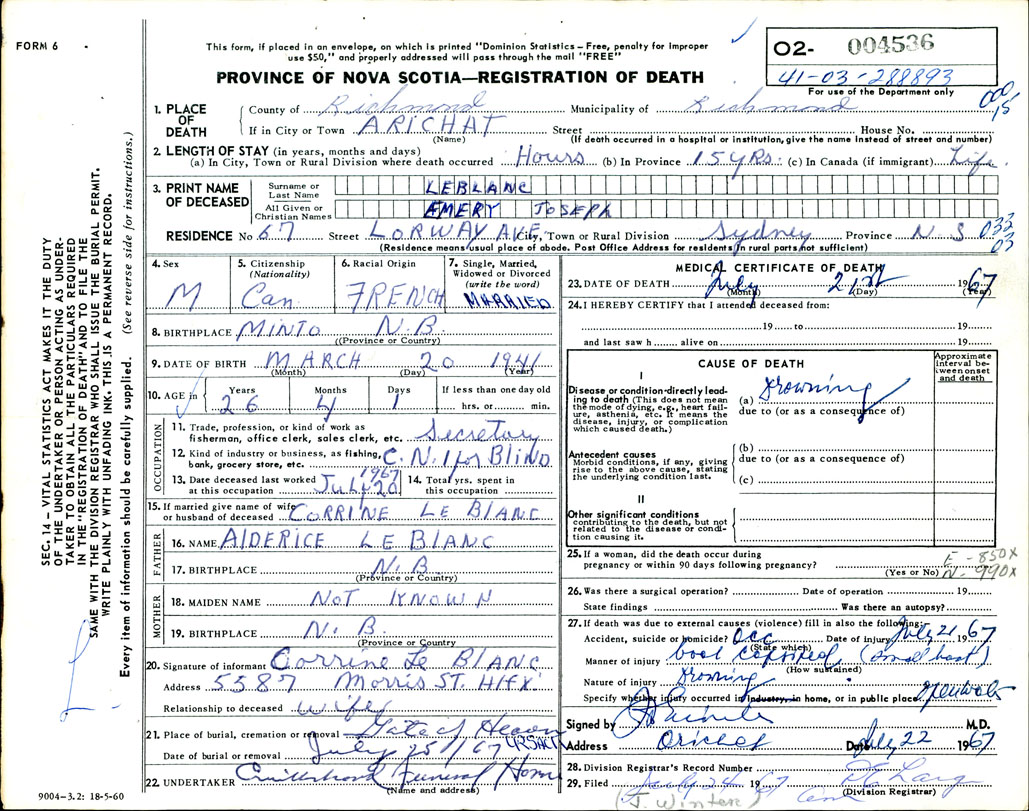 FORM 6
This form, if placed in an envelope, on which is printed "Dominion Statistics – Free, penalty for improper
use $50," and properly addressed will pass through the mail "FREE"
02- 004536
41-03-288893
For use of the Department only
PROVINCE OF NOVA SCOTIA—REGISTRATION OF DEATH
1. PLACE OF DEATH
County of Richmond Municipality of Richmond
If in City or Town ARICHAT Street House No.
(Name) (If death occurred in a hospital or institution, give the name instead of street and number)
2. LENGTH OF STAY (in years, months and days)
(a) In City, Town or Rural Division where death occurred Hours (b) In Province 15 YRS. (c) In Canada (if immigrant) Life
3. PRINT NAME OF DECEASED
Surname or Last Name LEBLANC
All Given or Christian Names EMERY JOSEPH
RESIDENCE No 67 Street LORWAY AVE City, Town or Rural Division Sydney Province N. S
(Residence means usual place of abode. Post Office Address for residents in rural parts not sufficient)
033
03
4. Sex M
5. Citizenship (Nationality) Can
6. Racial Origin FRENCH
7. Single, Married, Widowed or Divorced (write the word) MARRIED
8. BIRTHPLACE MINTO N.B.
(Province or Country)
9. DATE OF BIRTH MARCH 20 1941
(Month) (Day) (Year)
10. AGE in Years 26 Months 4 Days 1 If less than one day old hrs. or min.
OCCUPATION
11. Trade, profession, or kind of work as
fisherman, office clerk, sales clerk, etc. Secretary
12. Kind of industry or business, as fishing,
bank, grocery store, etc. C. N. I for Blind
13. Date deceased last worked
at this occupation July 20 1967
14. Total yrs. spent in
this occupation
15. If married give name of wife
or husband of deceased CORRINE LE BLANC
FATHER
16. NAME AlDERICE LE BLANC
17. BIRTHPLACE N.B.
(Province or Country)
MOTHER
18. MAIDEN NAME NOT KNOWN
19. BIRTHPLACE N. B.
(Province or Country)
20. Signature of informant Corrine Le Blanc
Address 5387 Morris ST. Hfx.
Relationship to deceased wife
21. Place of burial, cremation or removal Gate of Heaven
Date of burial or removal July 25/67
22. UNDERTAKER Funeral Home
(Name and address)
MEDICAL CERTIFICATE OF DEATH
23. DATE OF DEATH July 21st 1967
(Month) (Day) (Year)
24. I HEREBY CERTIFY that I attended deceased from:
19 to 19
and last saw h alive on 19
CAUSE OF DEATH
Approximate interval between onset and death
I
Disease or condition directly leading to death (This does not mean the mode of dying, e.g., heart failure, asthenia, etc. It means the disease, injury, or complication which caused death.)
(a) Drowning
due to (or as a consequence of)
Antecedent causes
Morbid conditions, if any, giving rise to the above cause, stating the underlying condition last.
(b)
due to (or as a consequence of)
(c)
II
Other significant conditions
contributing to the death, but not related to the disease or condition causing it.
25. If a woman, did the death occur during
pregnancy or within 90 days following pregnancy?
(Yes or No)
E - 850X
N - 990X
26. Was there a surgical operation? Date of operation 19
State findings Was there an autopsy?
27. If death was due to external causes (violence) fill in also the following:
Accident, suicide or homicide? Acc Date of injury July 21, 1967
(State which)
Manner of injury boat capsized (small boat)
(How sustained)
Nature of injury Drowning
Specify whether injury occurred in industry, in home, or in public place. Open water
Signed by M.D.
Address Arichat Date July 22 1967
28. Division Registrar's Record Number
29. Filed July 24 1967
(Division Registrar)
(J. Winter)
SEC. 14 – VITAL STATISTICS ACT MAKES IT THE DUTY
OF THE UNDERTAKER OR PERSON ACTING AS UNDER-
TAKER TO OBTAIN ALL THE PARTICULARS REQUIRED
IN THE "REGISTRATION OF DEATH" AND TO FILE THE
SAME WITH THE DIVISION REGISTRAR WHO SHALL ISSUE THE BURIAL PERMIT.
WRITE PLAINLY WITH UNFADING INK. THIS IS A PERMANENT RECORD.
Every item of information should be carefully supplied. (See reverse side for instructions.)
9004-3.2: 18-5-60